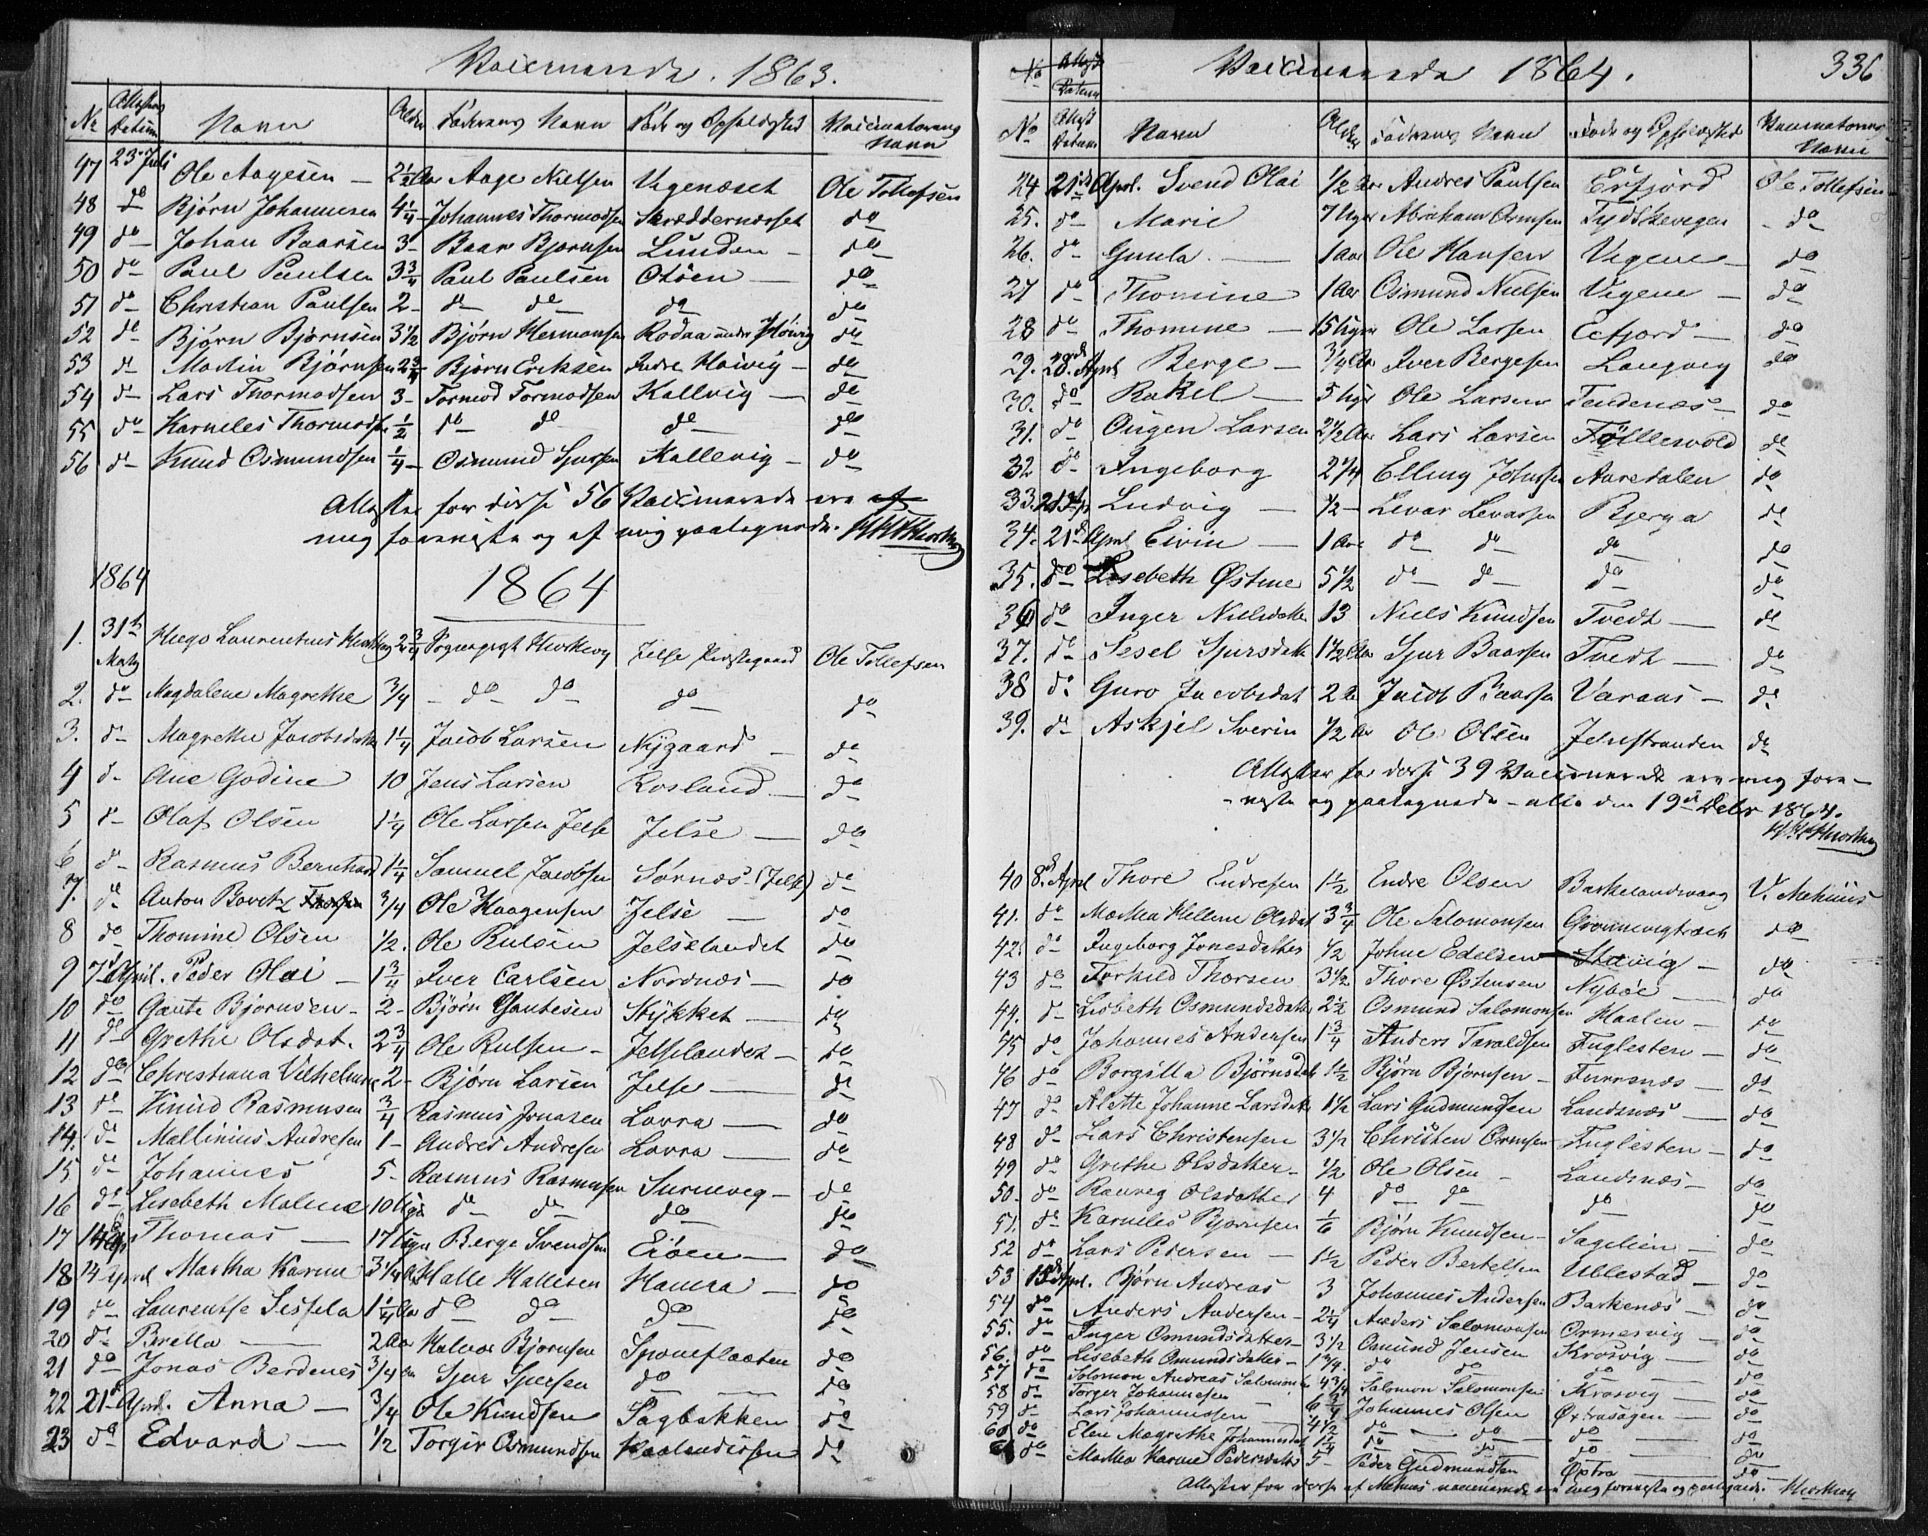 Vaccinerede. 1863.
No Attestens Datum Navn Alder Faderens Navn Føde og Opholdssted Vaccinatorens Navn
47 23 Juli Ole Aagesen — 2½ Aar Aage Nielsen Vigenæset Ole Tollefsen
48 do Bjørn Johannesen 4¼ Johannes Thormodsen Skræddernæsset do
49 do Johan Baarsen 3 - Baar Bjørnsen Lunden - do
50 do Paul Paulsen 3¾ Paul Paulsen Otøen — do
51 do Christian Paulsen 2 - do do do do
52 do Bjørn Bjørnsen 3½ Bjørn Hermansen Rødaa under Høivig do
53 do Martin Bjørnsen 2¾ Bjørn Eriksen Indre Høivig - do
54 do Lars Thormodsen 3 - Tormod Tormodsen Kallvig — do
55 do Karneles Thormodsen ½ do do do do
56 do Knud Osmundsen ¼ - Osmund Sjursen Kallevig - do
Attester for disse 56 Vaccinerede ere af
mig foreviste og af mig paategnede.
1864 1864
1. 31te Marts Hugo Laurentius 2¾ Sognepræst Jelse Præstegaard Ole Tollefsen
2. do Magdalene Magrethe ¾ - do do do do
3. do Magrethe Jacobsdatter 1¼ Jacob Larsen Nygaard - do
4 do Ane Godine 10 Jens Larsen Rosland — do
5 do Olaf Olsen 1¼ Ole Larsen Jelse Jelse — do
6 do Rasmus Bernhard 1¼ Samuel Jacobsen Sørnæs (Jelse) do
7. do Anton Bovitz ¾ Ole Haagensen Jelse — do
8 do Thomine Olsen ½. Ole Rulsen Jelselandet do
9 7d April. Peder Olai — 1¾ Iver Carlsen Nordnæs - do
10 do Gaute Bjørnsen - 2 - Bjørn Gautesen Stykket — do
11 do Grethe Olsdat. 2¾ Ole Rulsen - Jelselandet — do
12 do Christiana Vilhelmine 2 - Bjørn Larsen Jelse — do
13 do Knud Rasmusen ¾ Rasmus Jonasen Lovra — do
14. do Mallinius Andresen 1 - Andres Andresen Lovra — do
15 do Johannes 5 - Rasmus Rasmusen - do
16 do Lisebeth Malene 10 Uger do do do do
17 14 Thomas — 17 Uger Berge Svendsen Eiøen — do
18 14 April Martha Karine 3¼ Halle Hallesen Hamra — do
19 do Laurentse Sessela 1¼ Aar do do do do
20 do Brella — 2 Aar Halvor Bjørnsen do
21 do Jonas Berdenes ¾ Aar Sjur Sjursen do do
22 21d April. Anna — ¾ Ole Knudsen Sagbakken do
23 do Edvard — ½ Torger Osmundsen do

Vaccinerede 1864. 336
No Attest Datum
No Attest Datum Navn Alder Faderens Navn Føde og Opholdssted Vaccinatorens Navn
24 21de April. Svend Olai ½ Aar Andres Paulsen Erfjord Ole Tollefsen
25. do Marie 7 Uger Abraham Ormsen Tydskevegen do
26. do Gunla — 1 Aar Ole Hansen Vigene - do
27 do Thomine 1 Aar Osmund Nielsen Vigene - do
28 do Thomine — 15 Uger Ole Larsen Eefjord - do
29. 20. April Berge — ¾ Aar Iver Bergesen Langvig do
30. do Rakel — 5 Uger Ole Larsen Tendenæs - do
31. do Ougen Larsen 2½ Aar Lars Larsen Føllesvold do
32 do Ingeborg 2¼ Elling Johnsen Aaredalen do
33. Ludvig — ½ - Levar Levarsen Bjerga do
34. 21d April Eivin — 1 Aar do do do do
35. do Lisebeth Østine 5½ do do do do
36 do Inger Nillsdatter 13 Niels Knudsen Tvedt — do
37. do Sesel Sjursdatter 1½ Aar Sjur Baarsen Tvedt — do
38 do Guro Jacobsdat 2 Aar Jacob Baarsen Varaas - do
39. do Askjel Sverin ½ Aar Ole Olsen Jelsestranden do
Attester for disse 39 Vaccinerede ere mig fore-
viste og paategnede - alle den 19de Decbr 1864.
40 8de April Thore Endresen 1½ Endre Olsen Barkelandsvaag V. Mehuus
41. do Martha Hellene Olsdat 3¾ Ole Salomonsen do
42. do Ingeborg Jonesdatter ½ Johne Edelsen - do
43 do Torkild Thorsen 3½ Thore Østensen Nybøe do
44. do Lisbeth Osmundsdatter 2½ Osmund Salomonsen Haalen - do
45 do Johannes Andersen 1¾ Anders Taraldsen Fuglesten - do
46 do Borgilla Bjørnsdat 1½ Bjørn Bjørnsen - Furrenæs - do
47 do Alette Johanne Larsdatter 1½ Lars Gudmundsen Landsnæs — do
48 do Lars Christensen 3½ Christen Ormsen Fuglesten - do
49 do Grethe Olsdatter - ½ Ole Olsen - Landsnæs - do
50. do Ranveg Olsdatter 4 do do do do
51. do Karneles Bjørnsen 1/6 Bjørn Knudsen - Sagelien - do
52 do Lars Pedersen — 1½ Peder Bertelsen Ullestad - do
53 13de April. Bjørn Andreas 3 Johannes Andersen Barkenæs - do
54 do Anders Andersen - 2¼ Anders Salomonsen Ormesvig - do
55. do Inger Omundsdatter - 3½ Omund Jensen Krosvig - do
56. do Lisebeth Omundsdatter - 1¾. do do do do
57 do Solomon Andreas Salomonsen 4¾ Salomon Salomonsen Krosvig - do
58 do Torger Johannesen Johannes Olsen do
59 do Lars Johannessen 4½ do do do do
60 do Elen Magrethe Johannesdat 1¼ do do do do
61 do Martha Karine Pedersdatter 5 - Peder Gudmundsen Østra do
Attester for disse af Mehuus vaccinerede ere mig foreviste og paategnede.